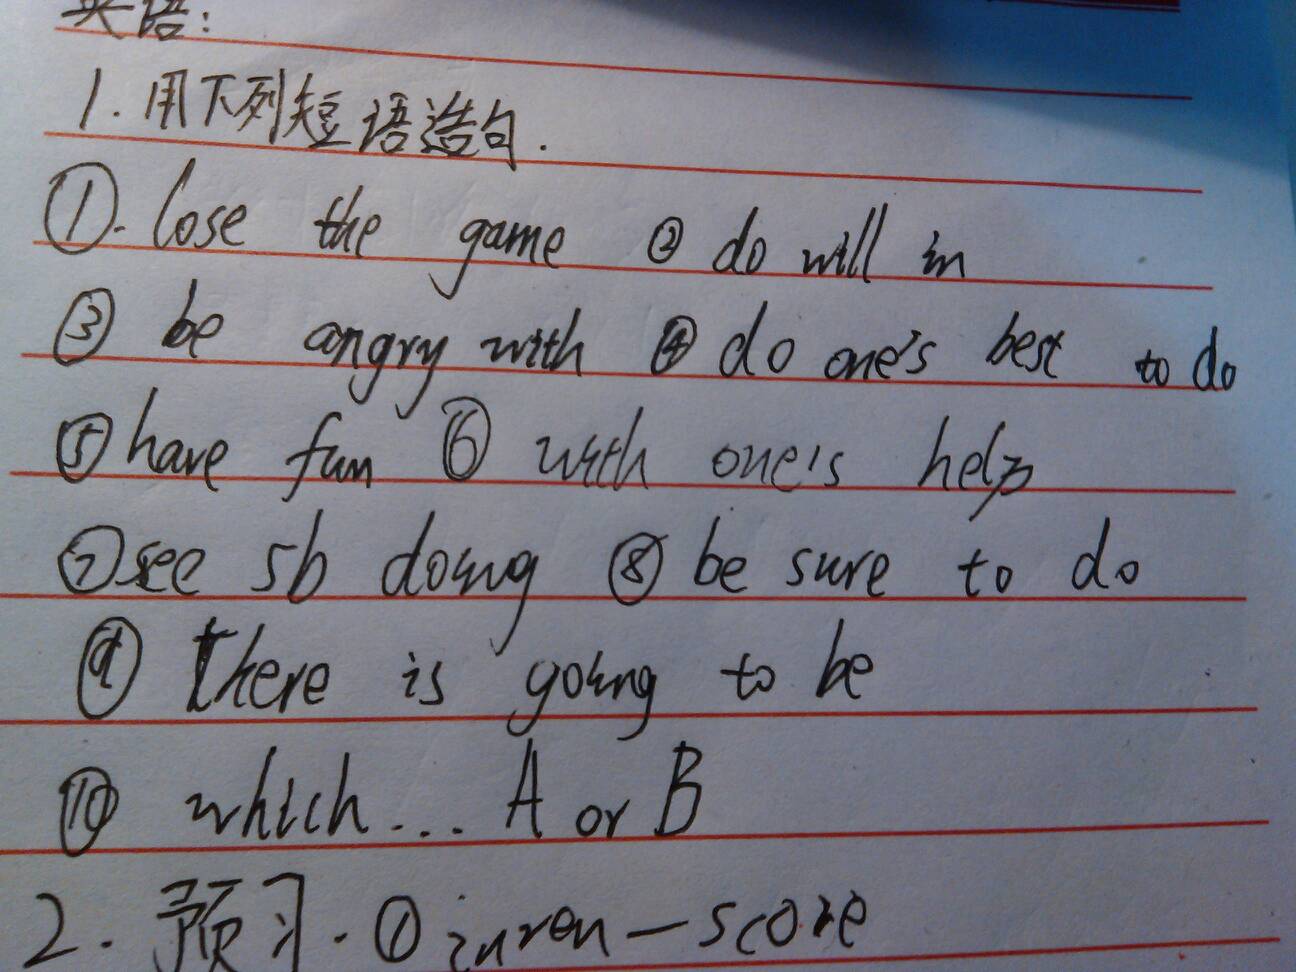 英语:
1. 用下列短语造句.
①. lose the game ② do will in
③ be angry with ④ do one's best to do
⑤ have fun ⑥ with one's help
⑦ see sb doing ⑧ be sure to do
⑨ there is going to be
⑩ which... A or B
2. 预习. ① — score